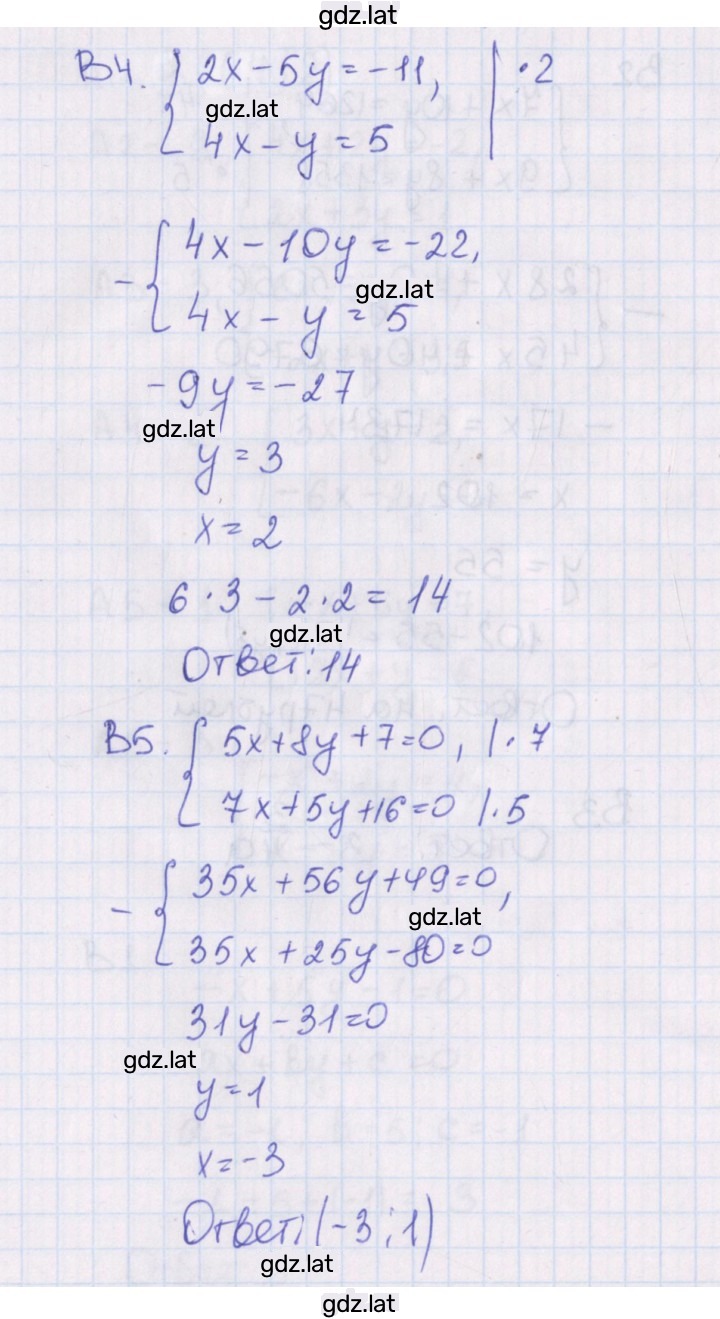 gdz.lat
В4. { 2x - 5y = -11, | · 2
gdz.lat
4x - y = 5
- { 4x - 10y = -22,
gdz.lat
4x - y = 5
- 9y = -27
gdz.lat
y = 3
x = 2
6 · 3 - 2 · 2 = 14
gdz.lat
Ответ: 14
В5. { 5x + 8y + 7 = 0, | · 7
7x + 5y + 16 = 0 | · 5
- { 35x + 56y + 49 = 0,
gdz.lat
35x + 25y - 80 = 0
31y - 31 = 0
gdz.lat
y = 1
x = -3
Ответ: (-3; 1)
gdz.lat
gdz.lat